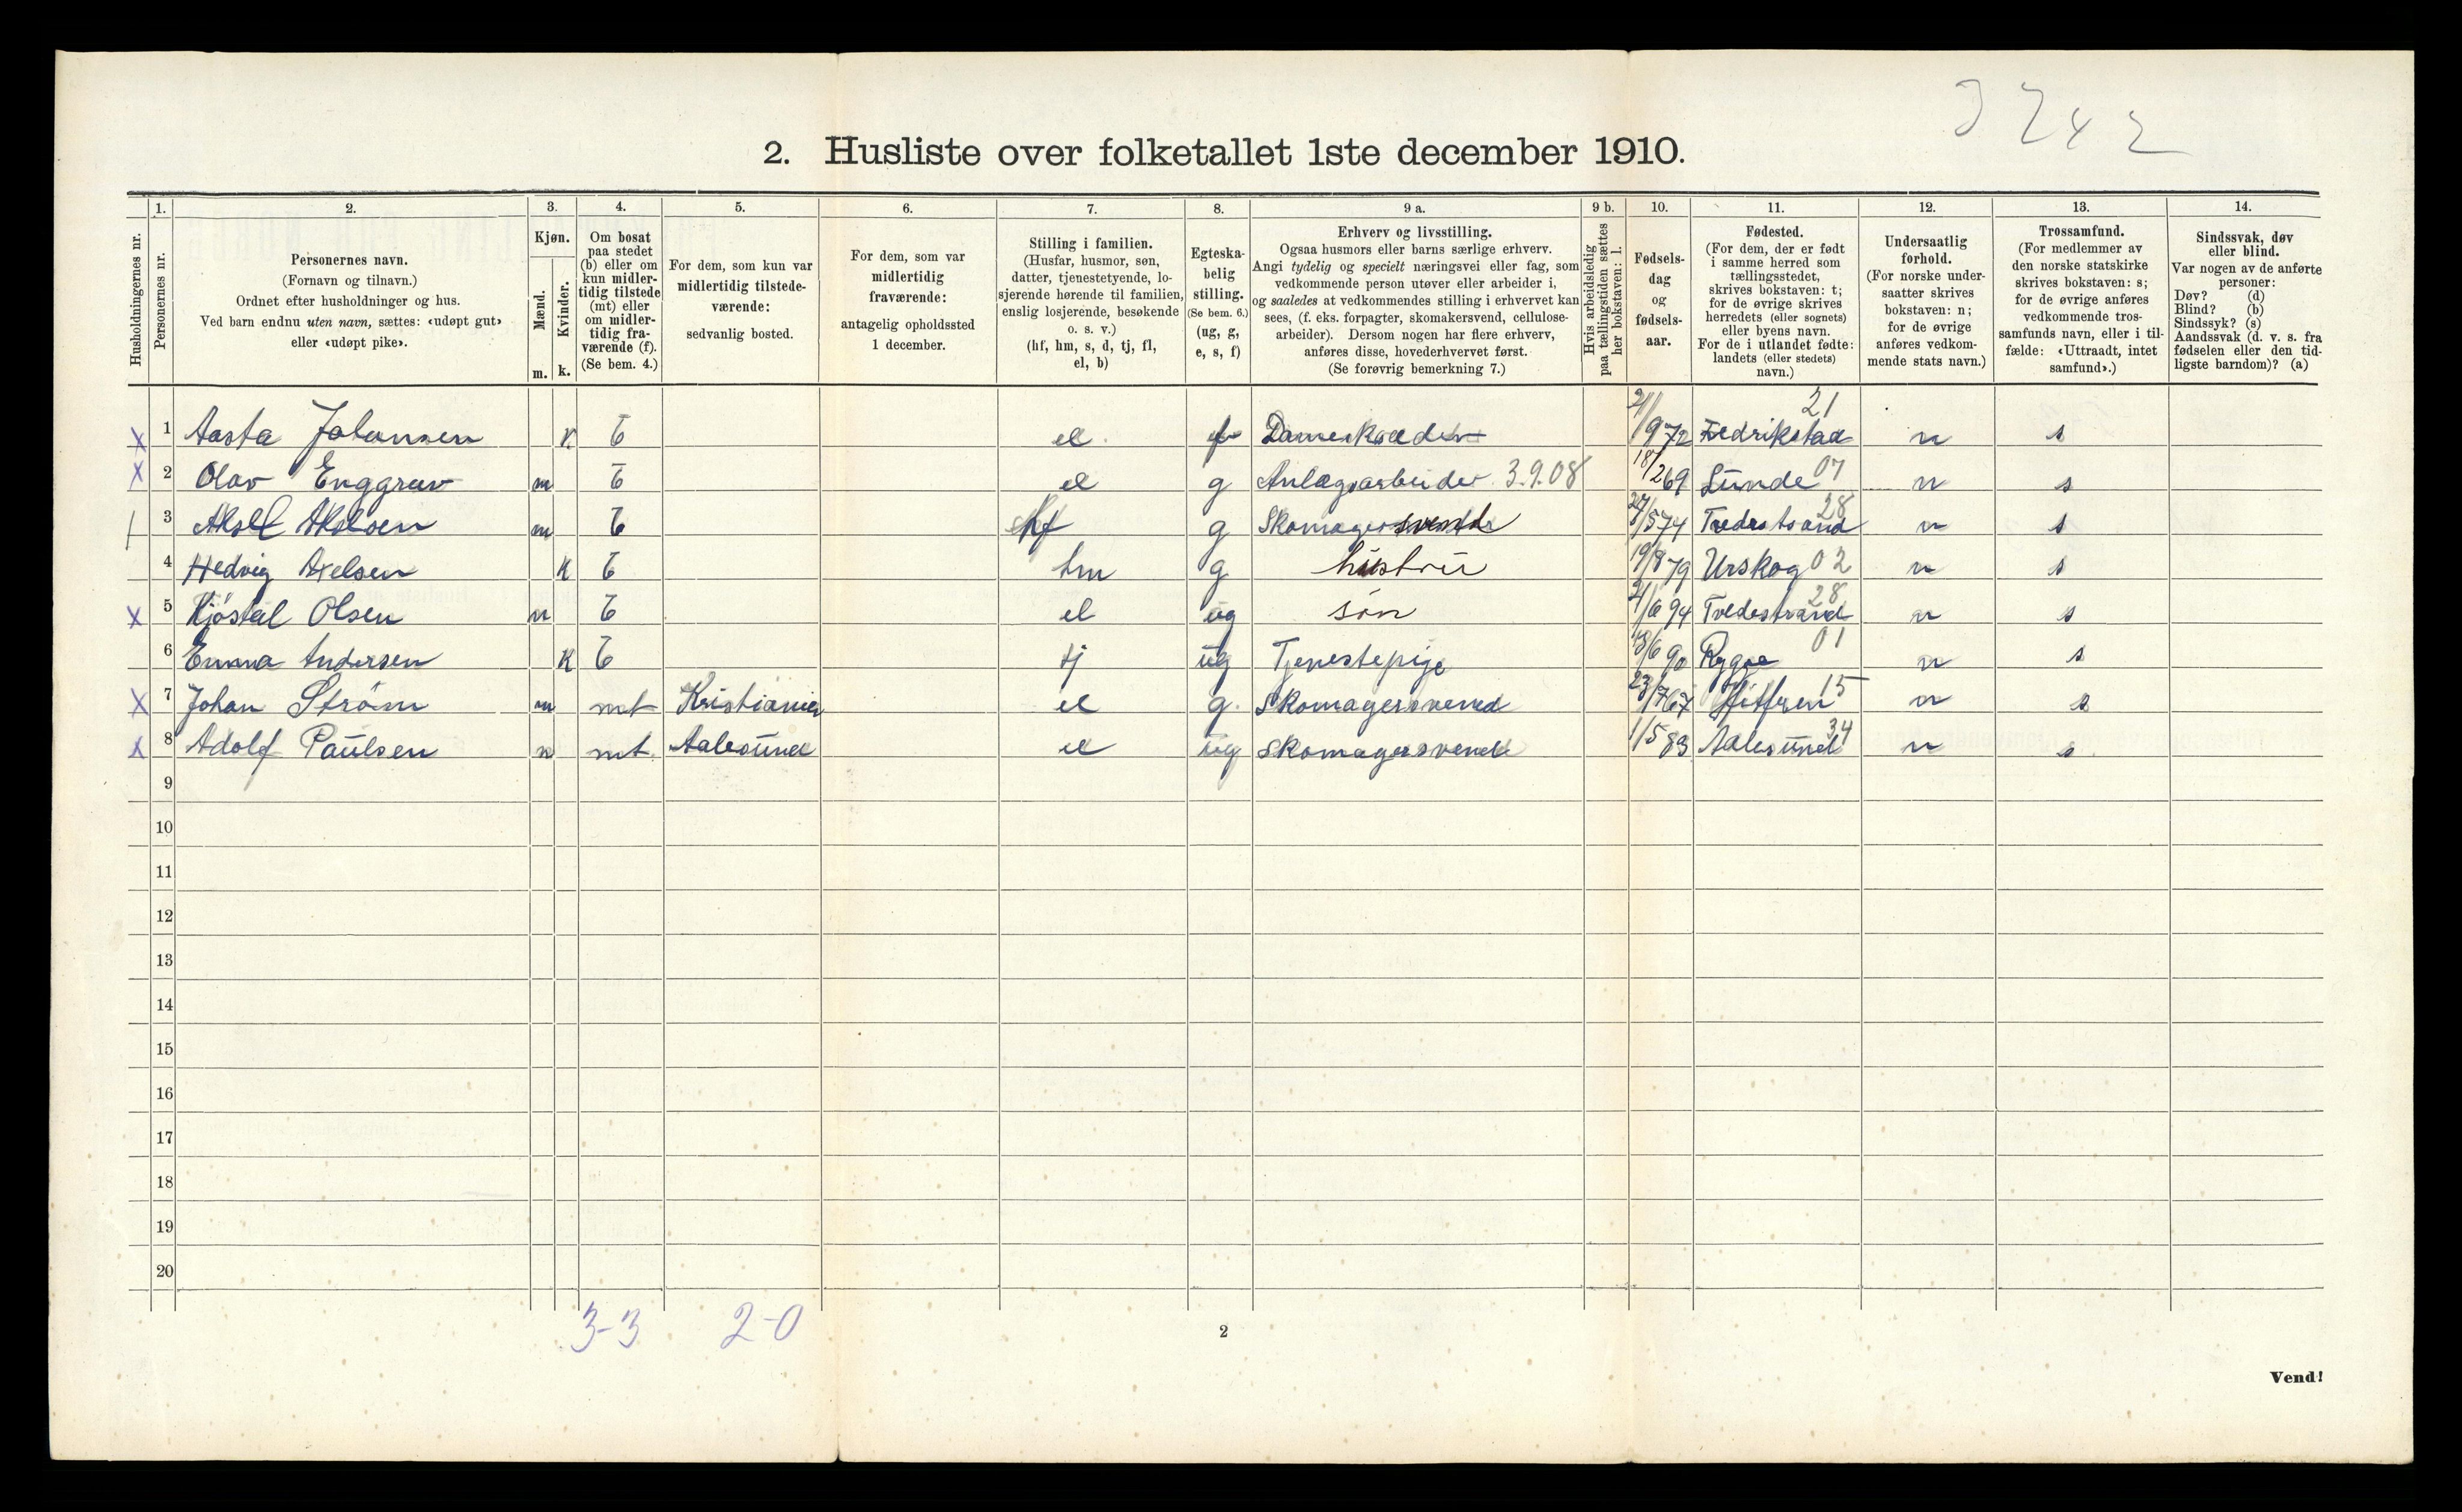 3 242
2. Husliste over folketallet 1ste december 1910.
Husholdningernes nr.
1. Personernes nr.
2. Personernes navn. (Fornavn og tilnavn.) Ordnet efter husholdninger og hus. Ved barn endnu uten navn, sættes: «udøpt gut» eller «udøpt pike».
3. Kjøn. Mænd. m. Kvinder. k.
4. Om bosat paa stedet (b) eller om kun midlertidig tilstede (mt) eller om midlertidig fraværende (f). (Se bem. 4.)
5. For dem, som kun var midlertidig tilstedeværende: sedvanlig bosted.
6. For dem, som var midlertidig fraværende: antagelig opholdssted 1 december.
7. Stilling i familien. (Husfar, husmor, søn, datter, tjenestetyende, losjerende hørende til familien, enslig losjerende, besøkende o. s. v.) (hf, hm, s, d, tj, fl, el, b)
8. Egteskabelig stilling. (Se bem. 6.) (ug, g, e, s, f)
9 a. Erhverv og livsstilling. Ogsaa husmors eller barns særlige erhverv. Angi tydelig og specielt næringsvei eller fag, som vedkommende person utøver eller arbeider i, og saaledes at vedkommendes stilling i erhvervet kan sees, (f. eks. forpagter, skomakersvend, cellulosearbeider). Dersom nogen har flere erhverv, anføres disse, hovederhvervet først. (Se forøvrig bemerkning 7.)
9 b. Hvis arbeidsledig paa tællingstiden sættes her bokstaven: l.
10. Fødselsdag og fødselsaar.
11. Fødested. (For dem, der er født i samme herred som tællingsstedet, skrives bokstaven: t; for de øvrige skrives herredets (eller sognets) eller byens navn. For de i utlandet fødte: landets (eller stedets) navn.)
12. Undersaatlig forhold. (For norske undersaatter skrives bokstaven: n; for de øvrige anføres vedkommende stats navn.)
13. Trossamfund. (For medlemmer av den norske statskirke skrives bokstaven: s; for de øvrige anføres vedkommende trossamfunds navn, eller i tilfælde: «Uttraadt, intet samfund».)
14. Sindssvak, døv eller blind. Var nogen av de anførte personer: Døv? (d) Blind? (b) Sindssyk? (s) Aandssvak (d. v. s. fra fødselen eller den tidligste barndom)? (a)
x 1 Aasta Johansen k b el f Dameskrædder 21/9 72 Fredrikstad 21 n s
x 2 Olav Enggrav m b el g Anlægsarbeider 3.9.08 18/2 69 Lunde 07 n s
3 Aksel Akelsen m b hf g Skomager 27/5 74 Tvedestrand 28 n s
4 Hedvig Axelsen k b hm g hustru 19/8 79 Urskog 02 n s
x 5 Kjøstal Olsen m b el ug søn 21/6 94 Tvedestrand 28 n s
6 Emma Andersen k b tj ug Tjenestepige 18/6 90 Rygge 01 n s
x 7 Johan Strøm m mt Kristiania el g Skomagersvend 23/7 67 15 n s
x 8 Adolf Paulsen m mt Aalesund el ug Skomagersvend 1/5 83 Aalesund 34 n s
9
10
11
12
13
14
15
16
17
18
19
20
3-3 2-0
2
Vend!